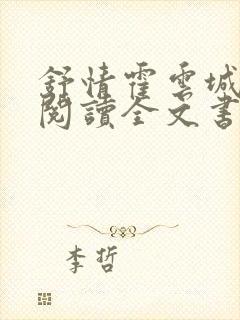 舒情霍雲城
閱讀全文書
李哲